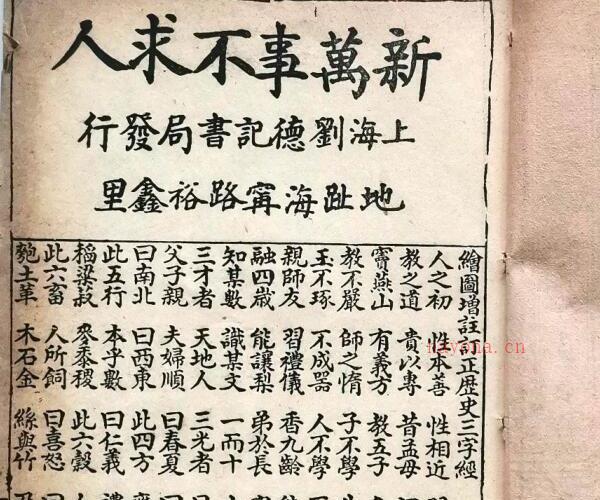 新萬事不求人
上海劉德記書局發行
地趾海甯路裕鑫里
繪圖增註訂正歷史三字經
人之初 性本善 性相近
教之道 貴以專 昔孟母
竇燕山 有義方 教五子
教不嚴 師之惰 子不學
玉不琢 不成器 人不學
親師友 習禮儀 香九齡
融四歲 能讓梨 弟於長
知某數 識某文 一而十
三才者 天地人 三光者
父子親 夫婦順 曰春夏
曰南北 曰西東 此四方
此五行 本乎數 曰仁義
稻梁叔 麥黍稷 此六穀
此六畜 人所飼 曰喜怒
匏土革 木石金 絲與竹
nayona.cn